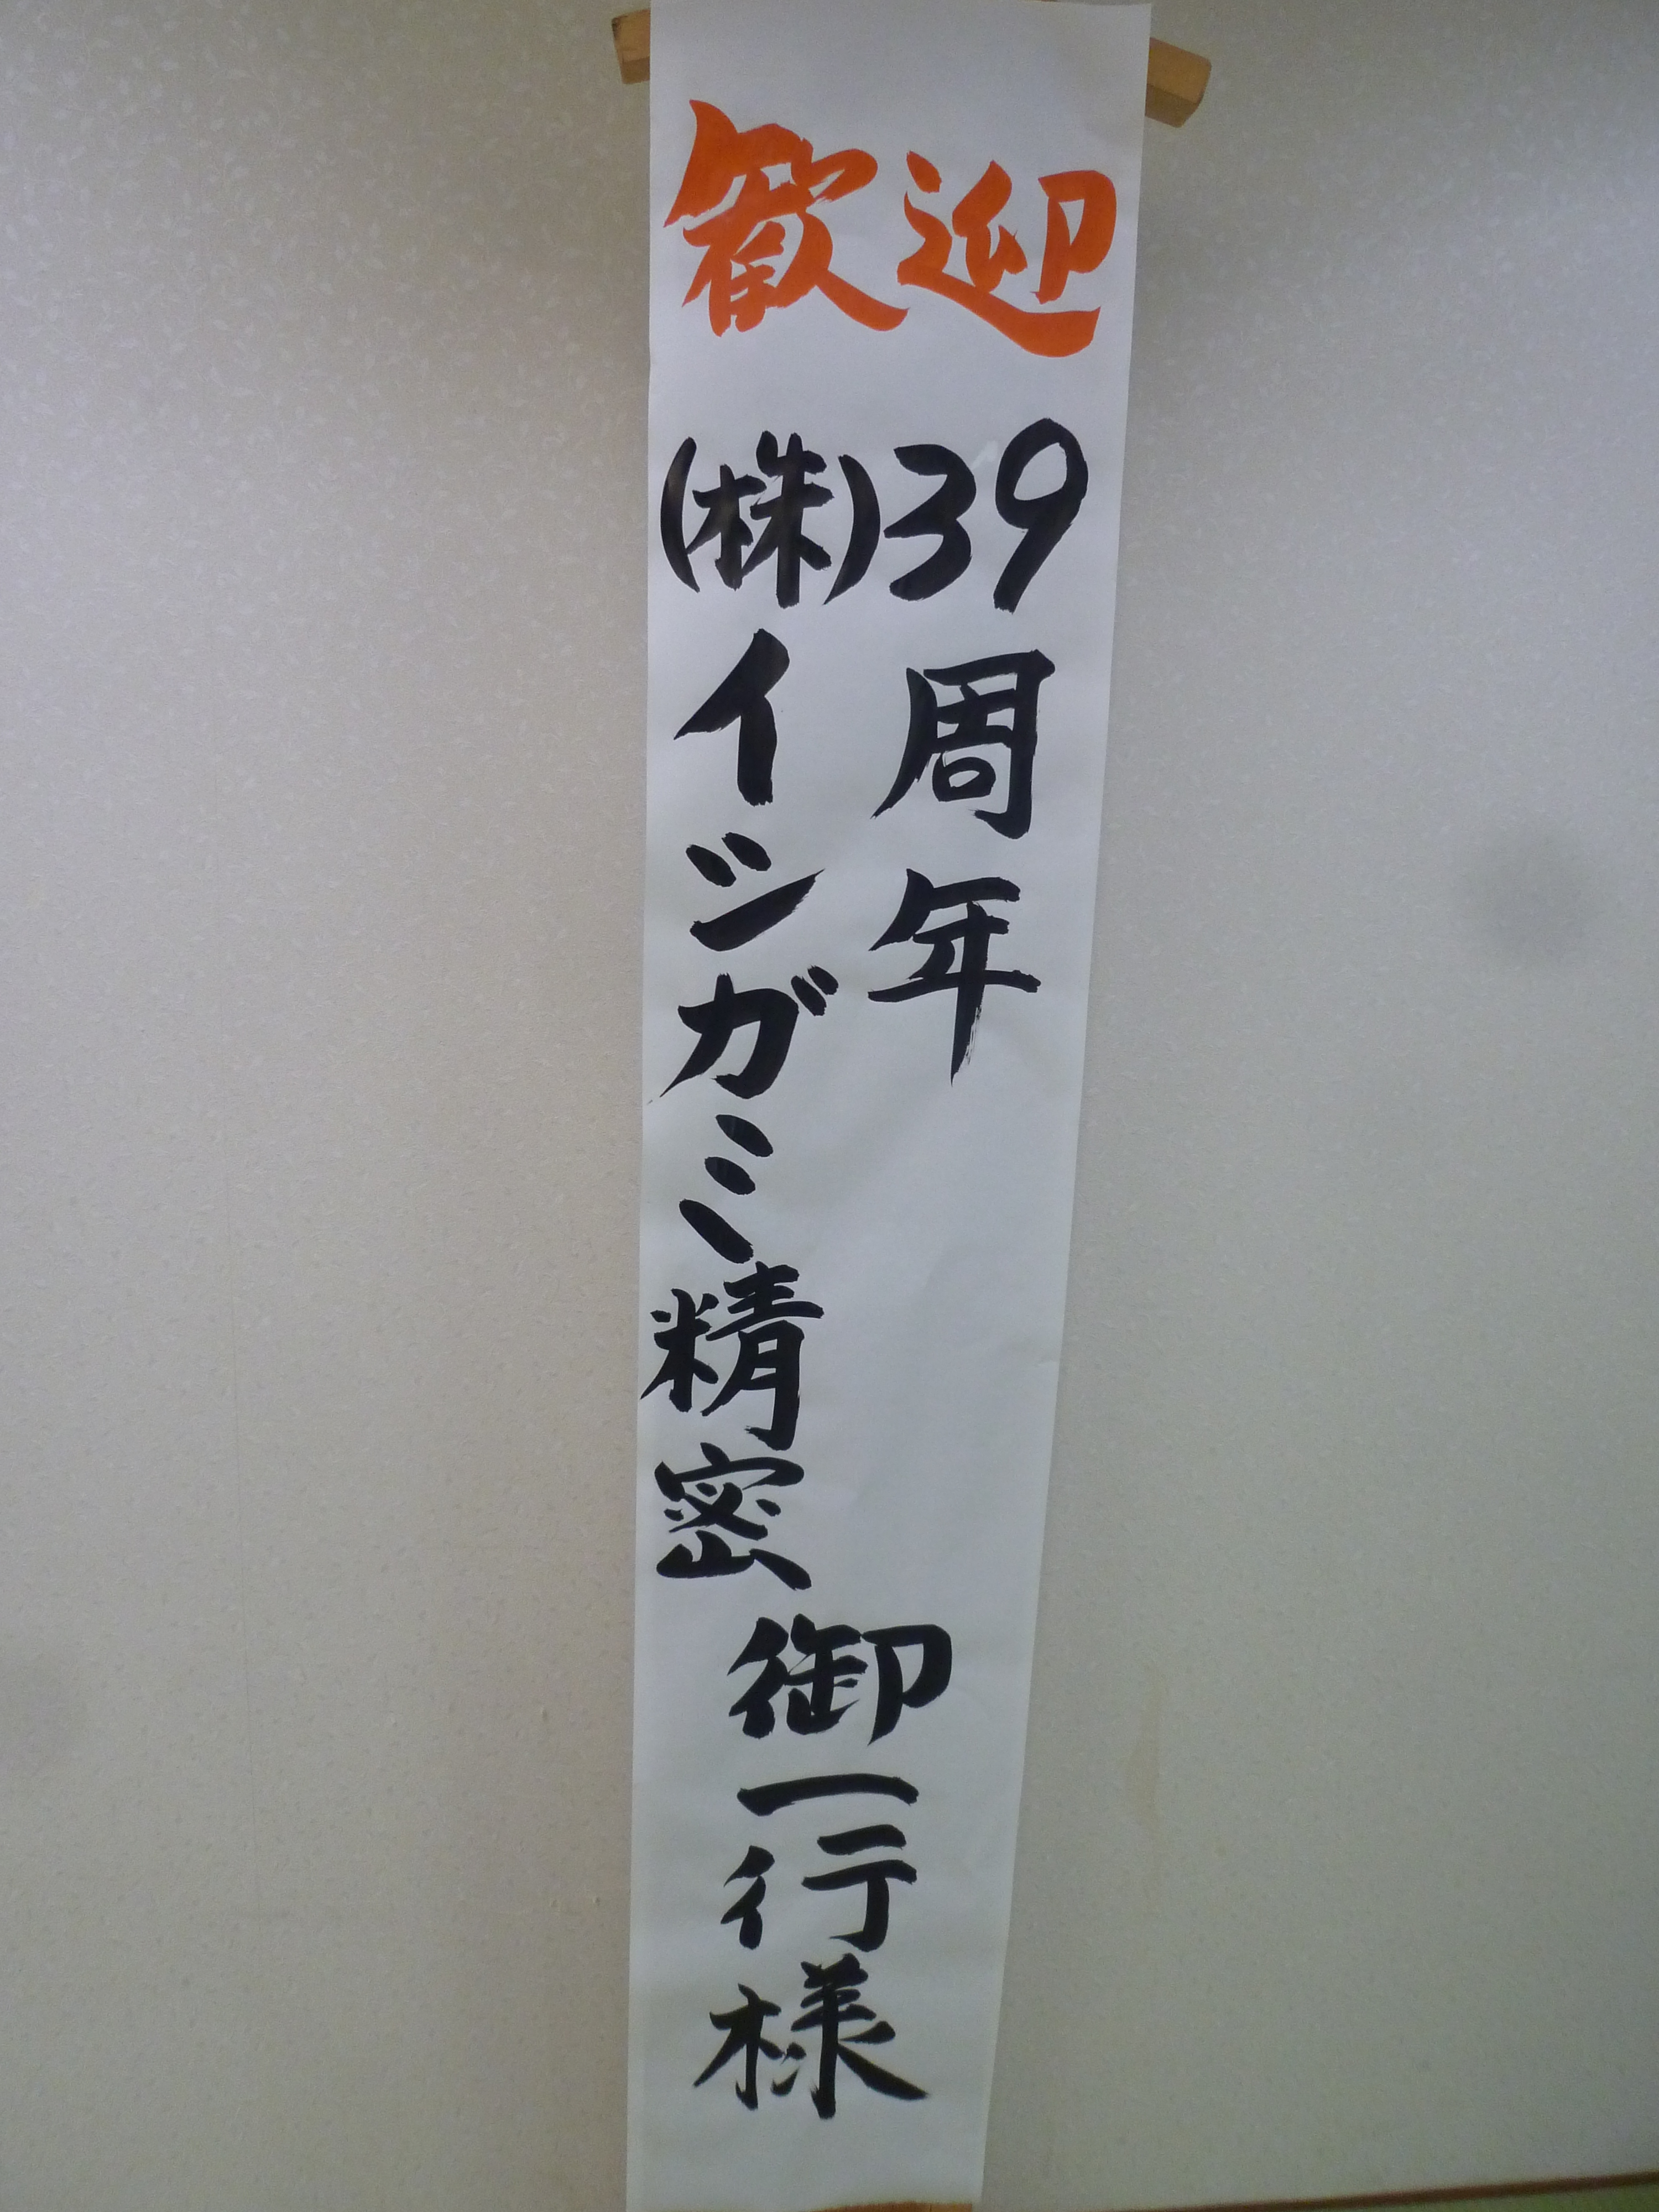 歓迎
39周年
(株)イシガミ精密
御一行様